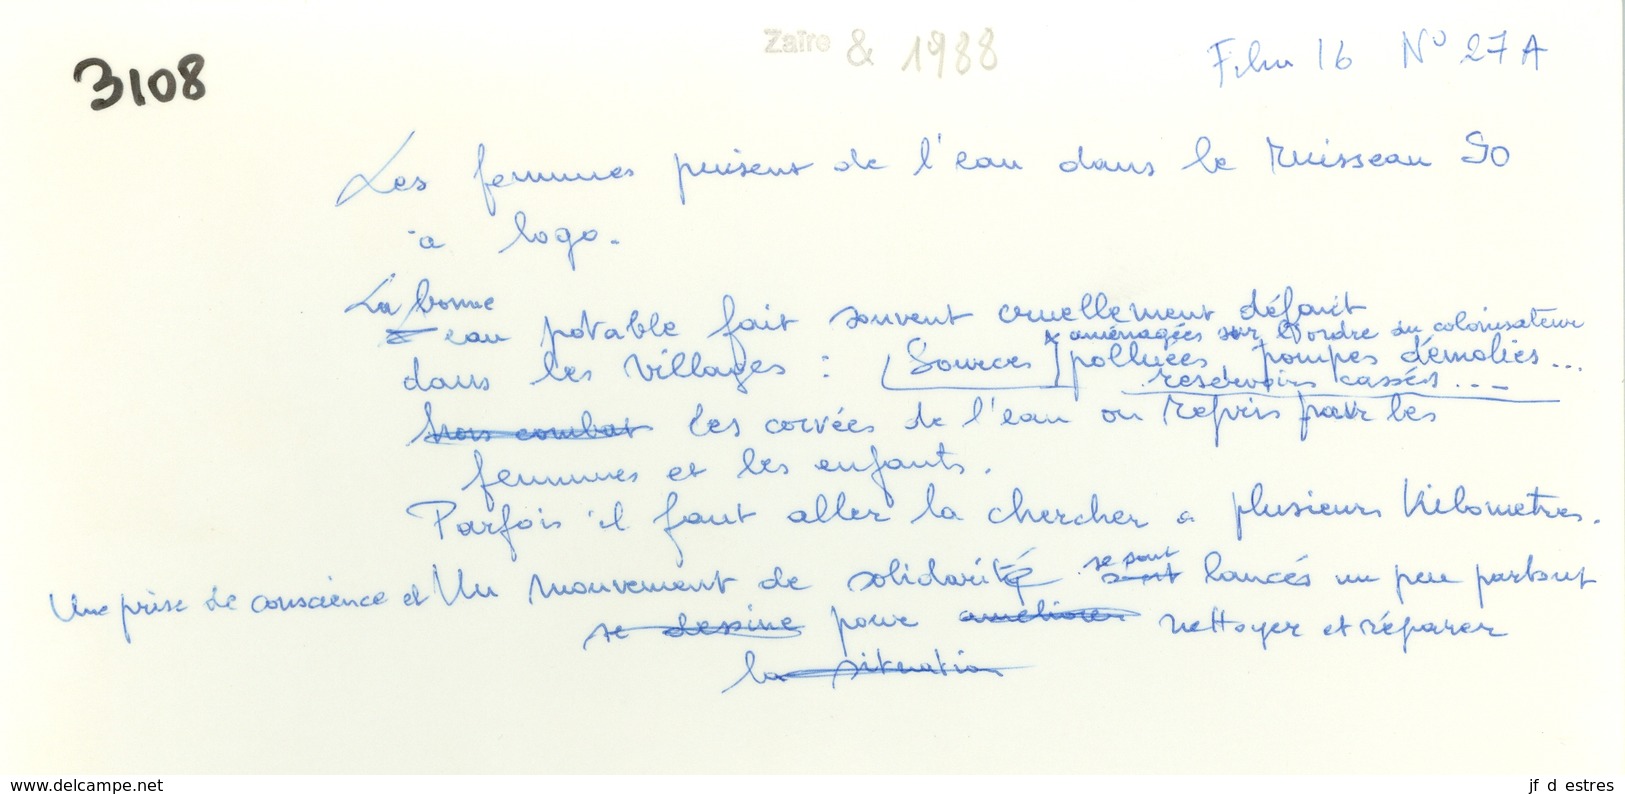 3108
Zaïre & 1988
Film 16 N° 27A
Les femmes puisent de l'eau dans le ruisseau So
à logo.
La bonne
eau potable fait souvent cruellement défaut
x aménagées sur l'ordre du colonisateur
dans les villages : Sources polluées, pompes démolies...
reservoirs cassés...
Les corvées de l'eau on repris par les
femmes et les enfants.
Parfois il faut aller la chercher a plusieurs kilometres.
se sont
Une prise de conscience et Un mouvement de solidarité sont lancés un peu partout
se dessine pour améliorer nettoyer et réparer
la situation
www.delcampe.net
jf d estres